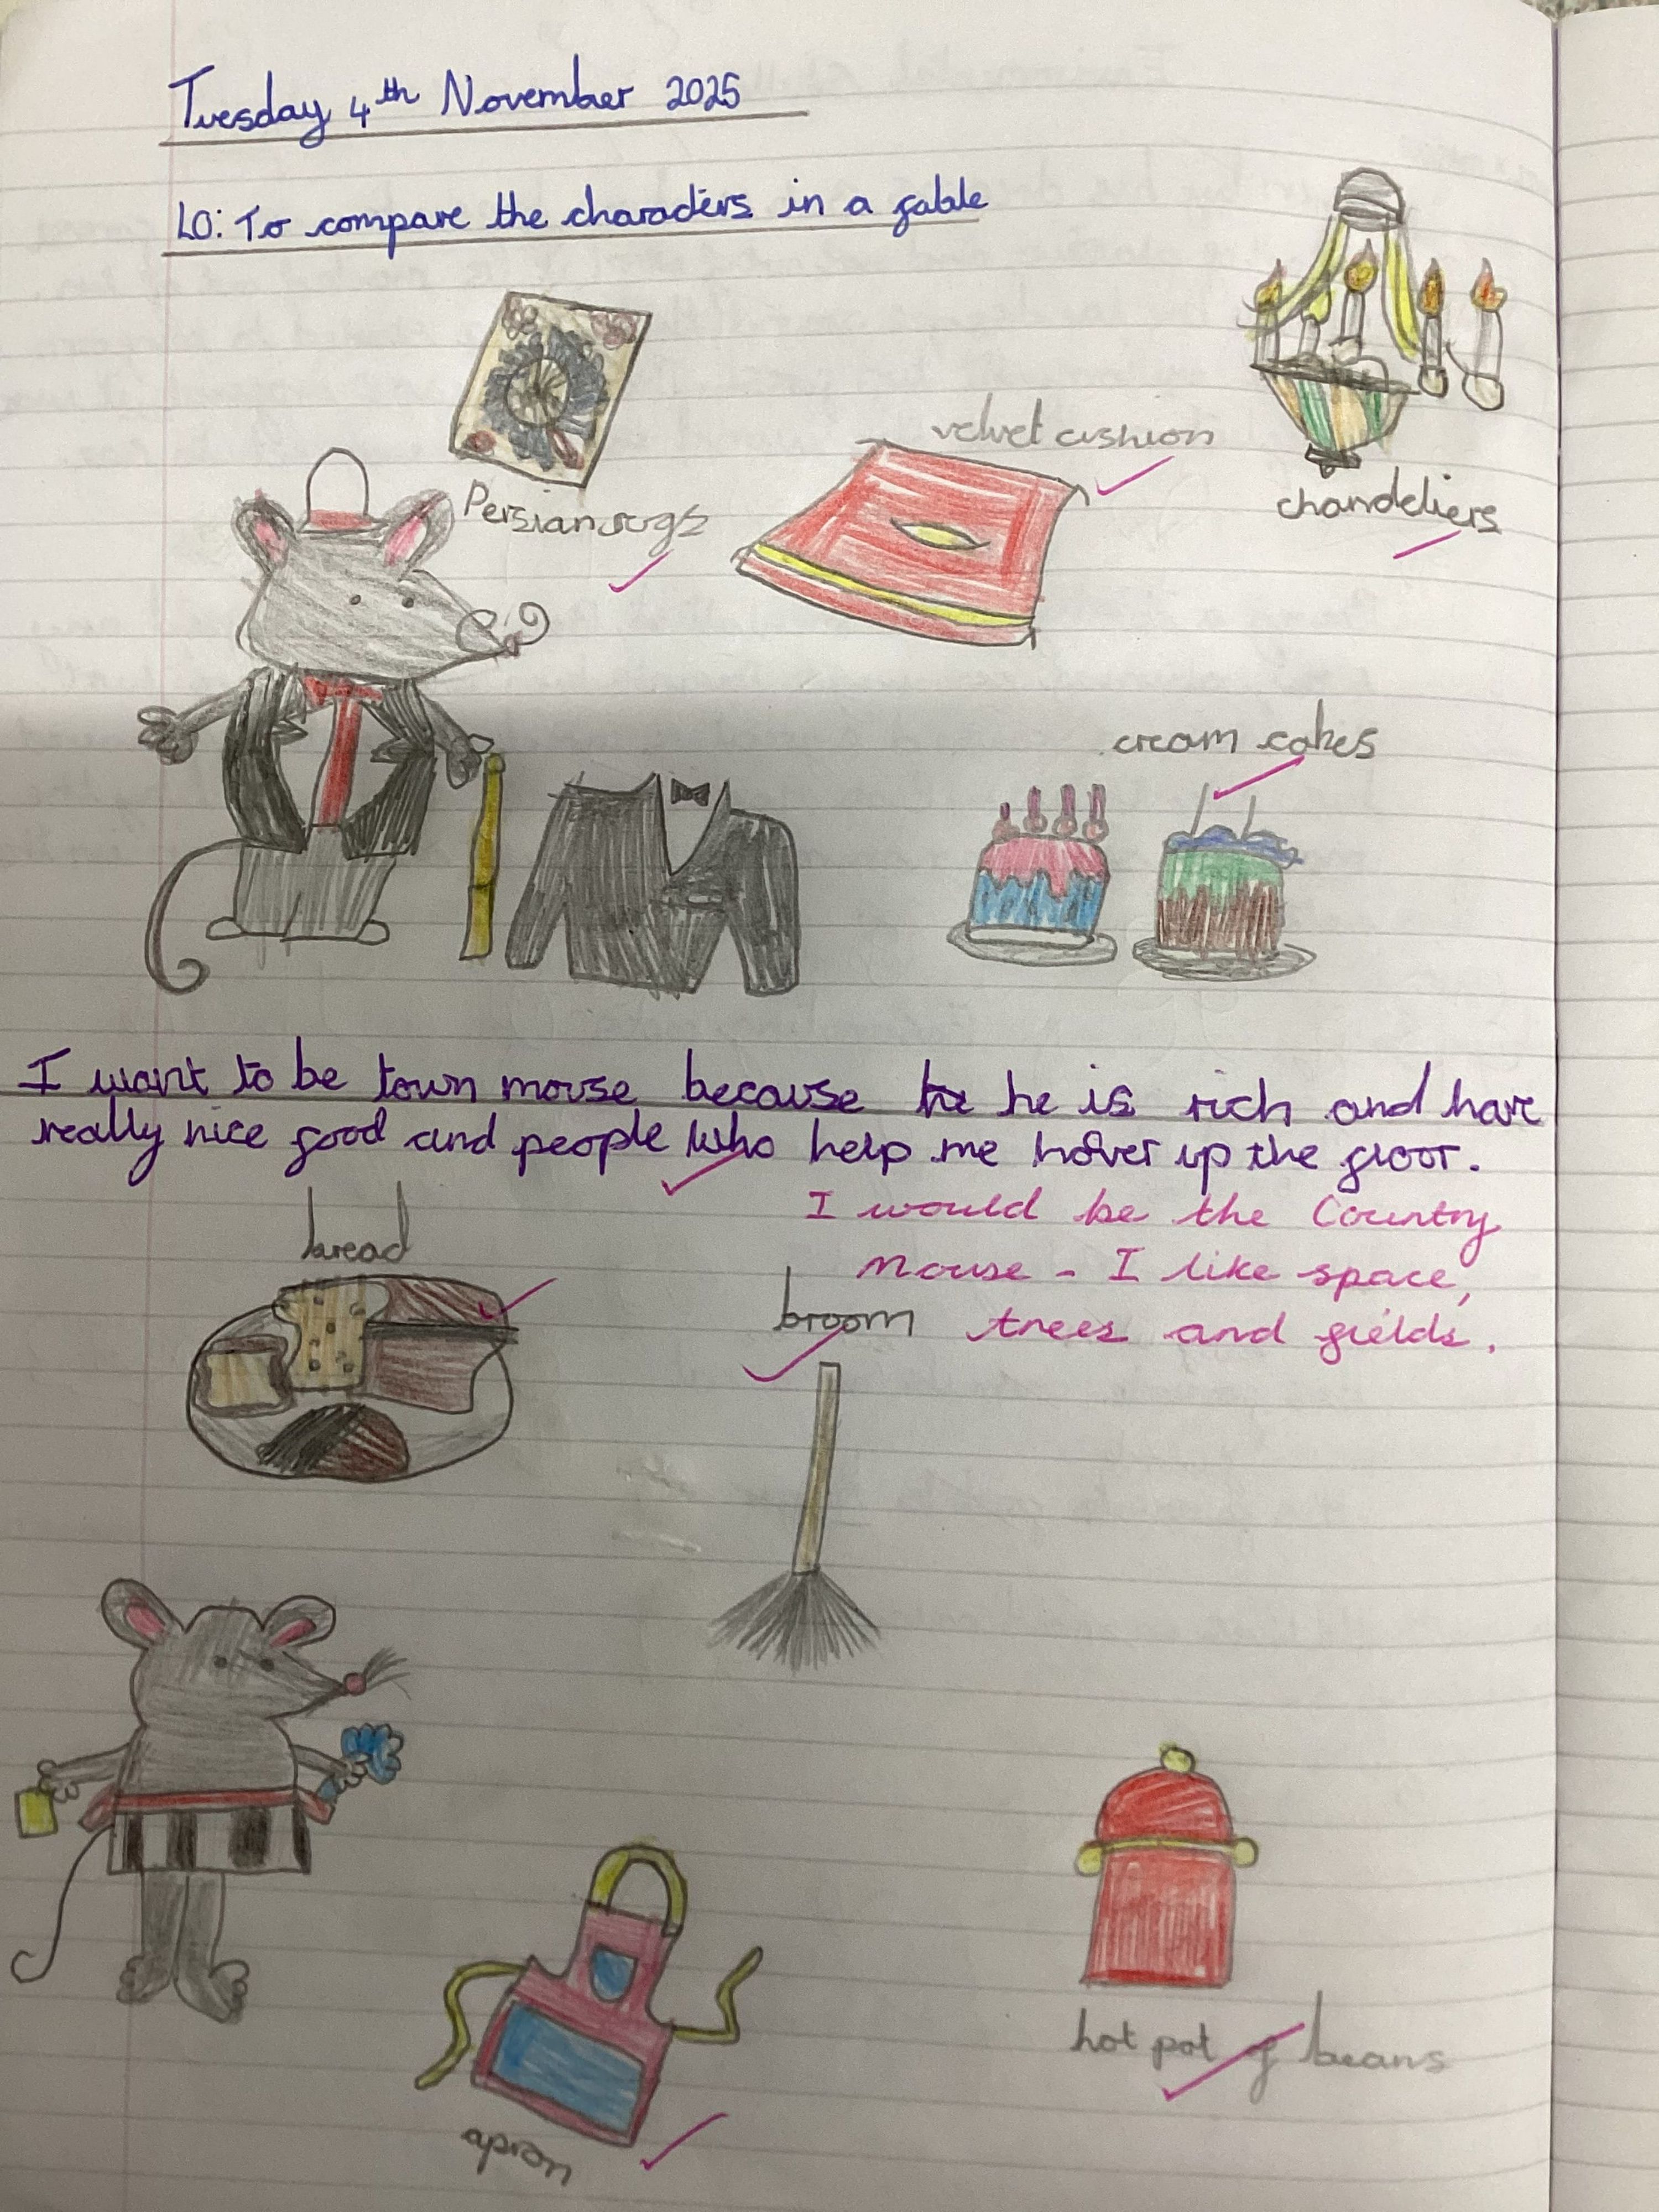 Tuesday 4th November 2025
LO: To compare the characters in a fable
velvet cushion
Persian rugs
chandeliers
cream cakes
I want to be town mouse because he he is rich and have
really nice food and people who help me hover up the floor.
I would be the Country
Mouse - I like space,
trees and fields.
bread
broom
hot pot of beans
apron